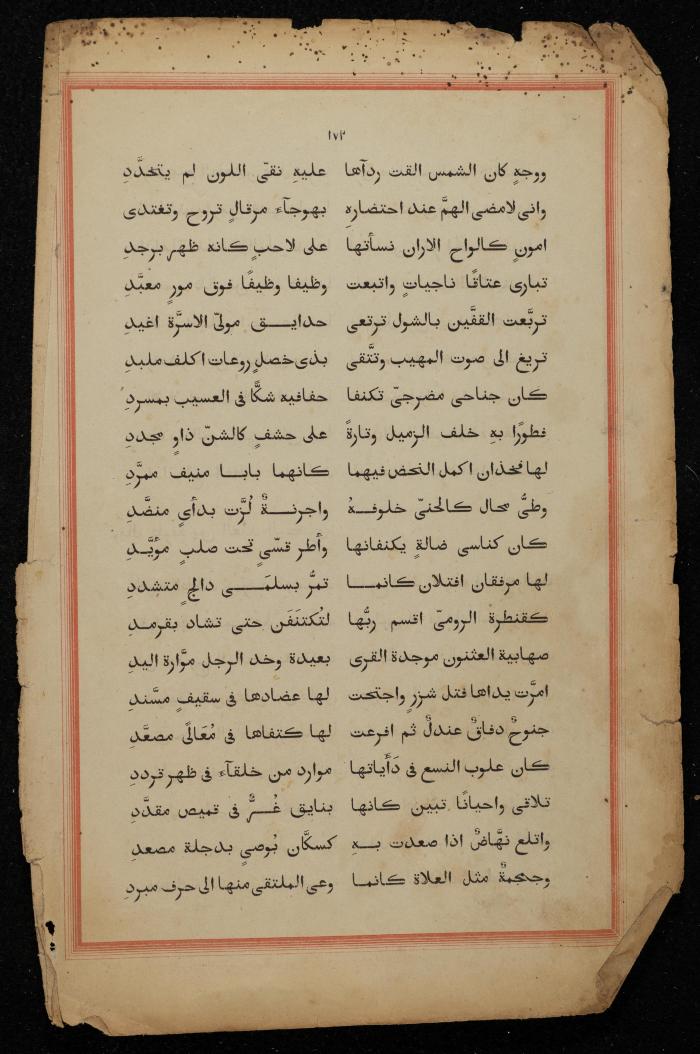 ١٧٢
ووجهٍ كان الشمس القت ردآها عليهِ نقىّ اللون لم يتخدَّدِ
وانى لامضى الهمَّ عند احتضارهِ بهوجآء مرقالٍ تروح وتغتدى
امونٍ كالواح الاران نسأتها على لاحبٍ كانه ظهر برجدِ
تبارى عتاقًا ناجياتٍ واتبعت وظيفا وظيفًا فوق مورٍ معبَّدِ
تربَّعت القفَّين بالشول ترتعى حدايق مولىّ الاسرَّة اغيدِ
تريغ الى صوت المهيب وتتَّقى بذى خصلٍ روعات اكلف ملبدِ
كان جناحى مضرجىّ تكنفا حفافيه شكَّا فى العسيب بمسردِ
فطورًا بهِ خلف الزميل وتارةً على حشفٍ كالشنّ ذاوٍ مجددِ
لها فخذان اكمل النحض فيهما كانهما بابا منيف ممرَّدِ
وطىُّ محال كالحنىّ خلوفهُ واجرنةٌ لُزَّت بدأىٍ منضَّدِ
كان كناسى ضالةٍ يكنفانها وأطر قسّىٍ تحت صلبٍ مؤيَّدِ
لها مرفقان افتلان كانما تمرُّ بسلمَى دالجٍ متشددِ
كقنطرة الرومىّ اقسم ربُّها لتُكتنَفَن حتى تشاد بقرمدِ
صهابية العثنون موجدة القرى بعيدة وخد الرجل موَّارة اليدِ
امرَّت يداها فتل شزرٍ واجتحت لها عضادها فى سقيفٍ مسَّندِ
جنوحٌ دفاقٌ عندلٌ ثم افرعت لها كتفاها فى مُعَالًى مصعَّدِ
كان علوب النسع فى دَأَياتها موارد من خلقآء فى ظهر ترددِ
تلاقى واحيانًا تبين كانها بنايق غُرٌّ فى قميص مقدَّدِ
واتلع نهَّاضٌ اذا صعدت بهِ كسكَّان بُوصىٍ بدجلة مصعدِ
وجمجمةٌ مثل العلاة كانما وعى الملتقى منها الى حرف مبردِ